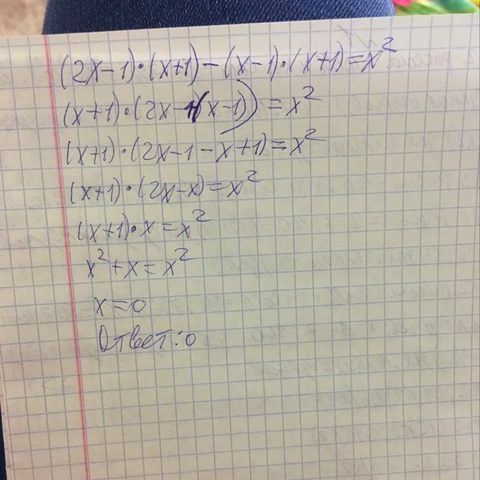 (2x-1)·(x+1)-(x-1)·(x+1)=x²
(x+1)·(2x-1(x-1))=x²
(x+1)·(2x-1-x+1)=x²
(x+1)·(2x-x)=x²
(x+1)·x=x²
x²+x=x²
x=0
Ответ:0